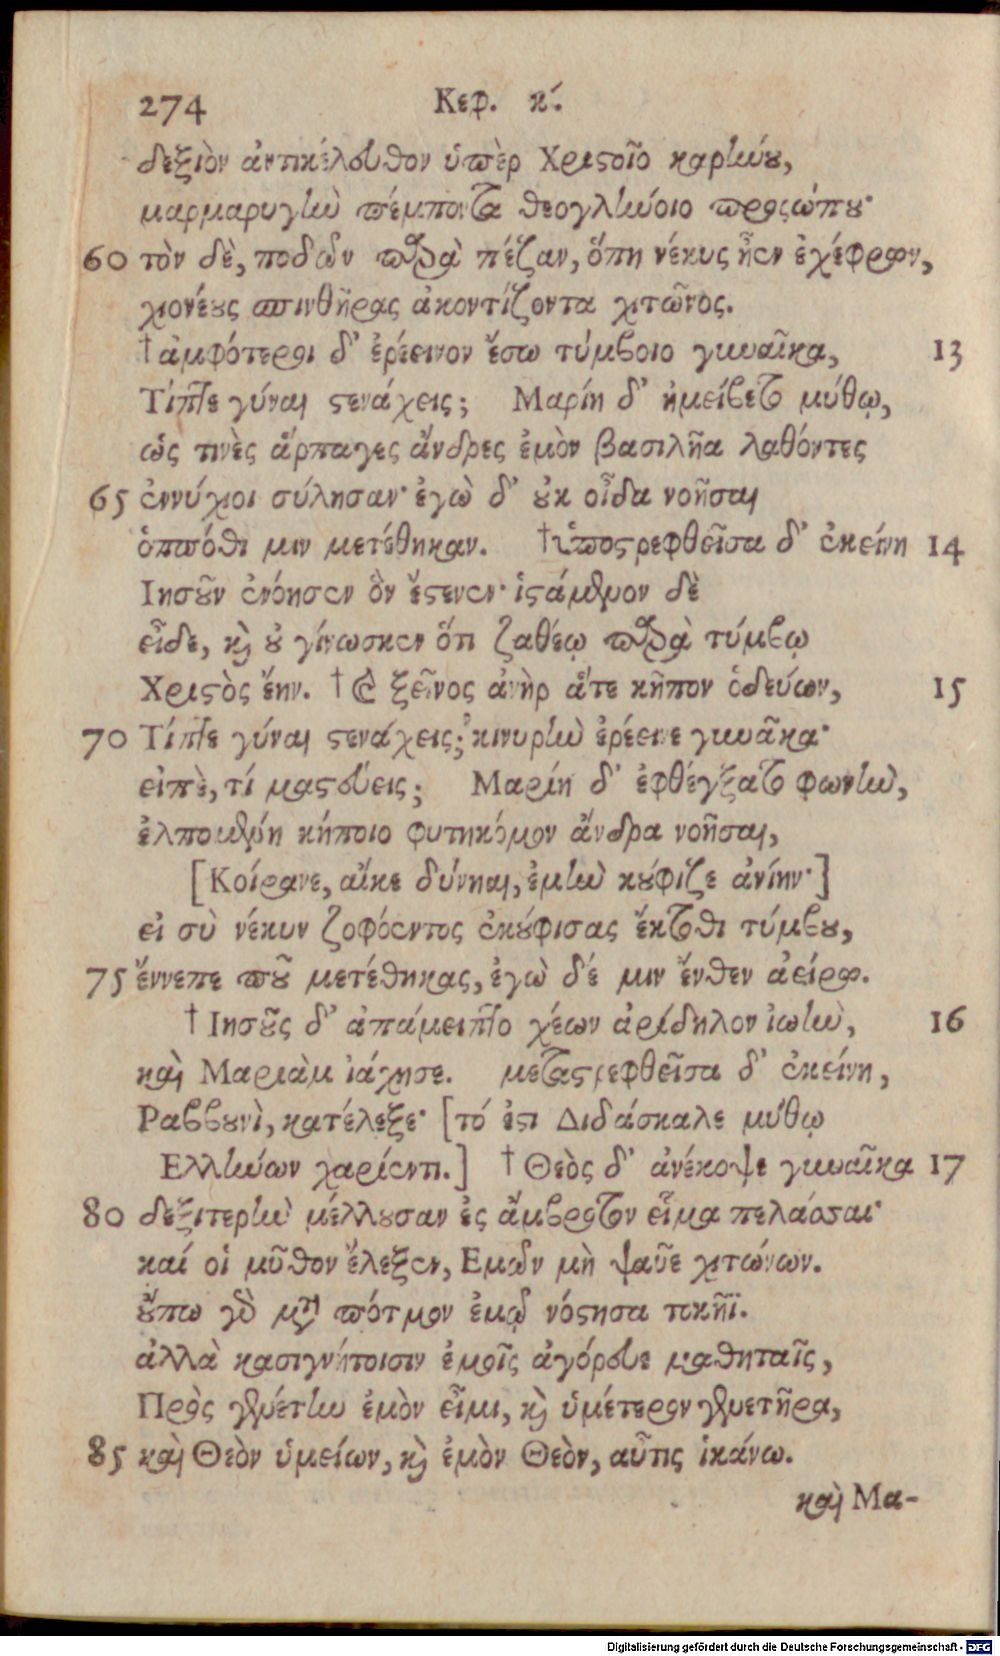 274 Κεφ. κ´.
δεξιὸν ἀντικέλευθον ὑπὲρ Χριστοῖο καρήνου,
μαρμαρυγὴν πέμποντα θεογλήνοιο προσώπου·
60 τὸν δὲ, ποδῶν παρὰ πέζαν, ὅπη νέκυς ἦεν ἐχέφρων,
χιονέους σπινθῆρας ἀκοντίζοντα χιτῶνος.
† ἀμφότεροι δ' ἐρέεινον ἔσω τύμβοιο γυναῖκα, 13
Τίπτε γύναι στενάχεις; Μαρίη δ' ἠμείβετο μύθῳ,
ὥς τινὲς ἅρπαγες ἄνδρες ἐμὸν βασιλῆα λαθόντες
65 ἐννύχιοι σύλησαν· ἐγὼ δ' οὐκ οἶδα νοῆσαι
ὁππόθι μιν μετέθηκαν. † ὑποστρεφθεῖσα δ' ἐκείνη 14
Ιησοῦν ἐνόησεν ὃν ἔστενεν· ἱστάμενον δὲ
εἶδε, καὶ οὐ γίνωσκεν ὅτι ζαθέῳ παρὰ τύμβῳ
Χριστὸς ἔην. † Ὁ ξεῖνος ἀνὴρ ἅτε κῆπον ὁδεύων, 15
70 Τίπτε γύναι στενάχεις; κινυρὴν ἐρέεινε γυναῖκα·
εἰπὲ, τί μαστεύεις; Μαρίη δ' ἐφθέγξατο φωνὴν,
ἐλπομένη κήποιο φυτηκόμον ἄνδρα νοῆσαι,
[Κοίρανε, αἴκε δύνηαι, ἐμὴν κούφιζε ἀνίην·]
εἰ σὺ νέκυν ζοφόεντος ἐκούφισας ἔκτοθι τύμβου,
75 ἔννεπε ποῦ μετέθηκας, ἐγὼ δέ μιν ἔνθεν ἀείρω.
† Ιησοῦς δ' ἀπάμειπτο χέων ἀρίδηλον ἰωὴν, 16
καὶ Μαριὰμ ἰάχησε. μεταστρεφθεῖσα δ' ἐκείνη,
Ραββουνὶ, κατέλεξε· [τό ἐστι Διδάσκαλε μύθῳ
Ελλήνων χαρίεντι.] † Θεὸς δ' ἀνέκοψε γυναῖκα 17
80 δεξιτερὴν μέλλουσαν ἐς ἄμβροτον εἷμα πελάσσαι·
καί οἱ μῦθον ἔλεξεν, Εμῶν μὴ ψαῦε χιτώνων.
οὔπω γὰρ μετὰ πότμον ἐμῷ νόστησα τοκῆϊ.
ἀλλὰ κασιγνήτοισιν ἐμοῖς ἀγόρευε μαθηταῖς,
Πρὸς γενέτην ἐμὸν εἶμι, καὶ ὑμέτερον γενετῆρα,
85 καὶ Θεὸν ὑμείων, καὶ ἐμὸν Θεὸν, αὖτις ἱκάνω.
καὶ Μα-
Digitalisierung gefördert durch die Deutsche Forschungsgemeinschaft - DFG